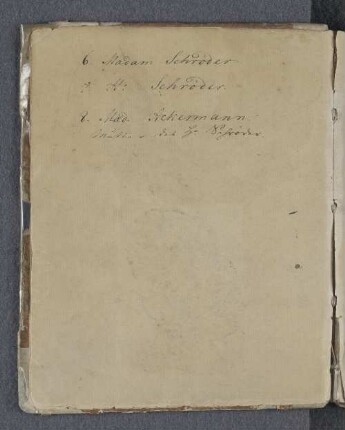 6. Madam Schröder
H: Schröder.
8. Mad. Ackermann
des H: Schröder.